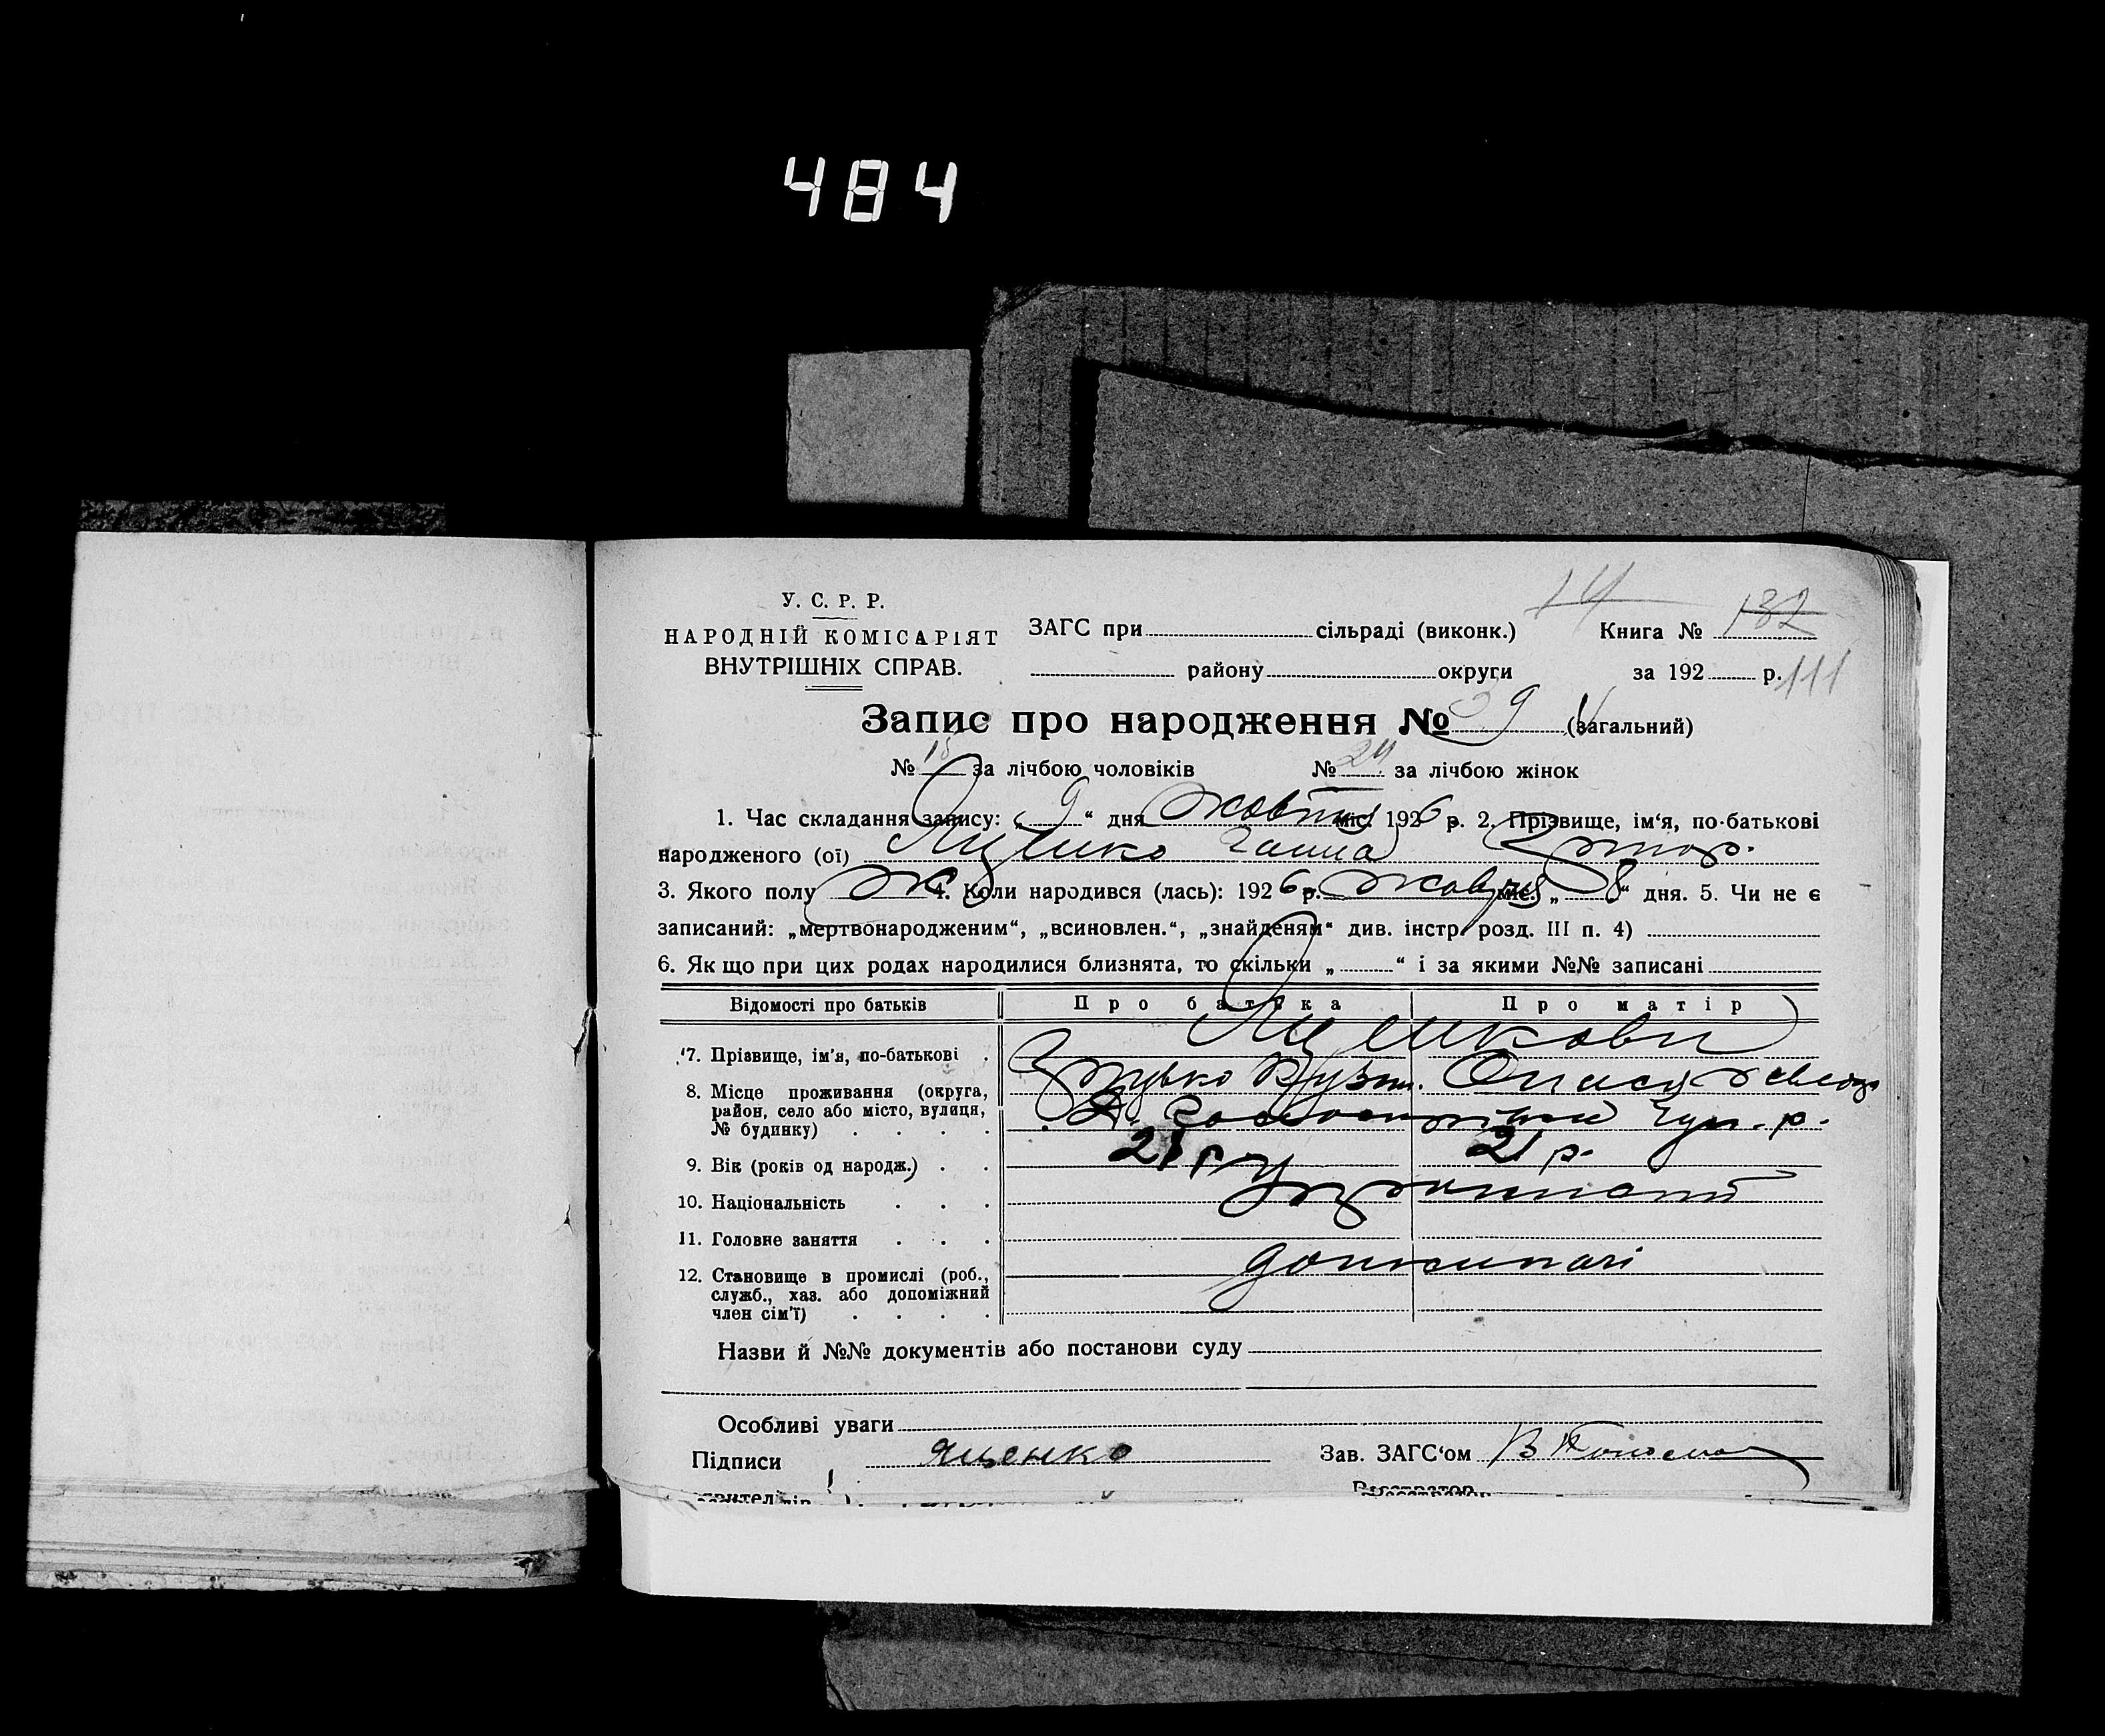 484
14 132
У. С. Р. Р.
НАРОДНІЙ КОМІСАРІЯТ
ВНУТРІШНІХ СПРАВ.
ЗАГС при сільраді (виконк.) Книга №
району округи за 192 р. 111
Запис про народження № 39 (загальний)
№ 15 за лічбою чоловіків № 24 за лічбою жінок
1. Час складання запису: „ 9 “ дня жовтня міс. 1926 р. 2. Прізвище, ім‘я, по-батькові
народженого (ої) Ганна
3. Якого полу ж 4. Коли народився (лась): 1926 р. жовтня міс. „ 8 “ дня. 5. Чи не є
записаний: „мертвонародженим“, „всиновлен.“, „знайденям“ див. інстр. розд. III п. 4)
6. Як що при цих родах народилися близнята, то скільки „ “ і за якими №№ записані
Відомості про батьків Про батька Про матір
7. Прізвище, ім'я, по-батькові
8. Місце проживання (округа,
район, село або місто, вулиця,
№ будинку)
р.
9. Вік (років од народж.) 21 р 21 р.
10. Національність
11. Головне заняття
12. Становище в промислі (роб.,
служб., хаз. або допоміжний
член сім'ї)
Назви й №№ документів або постанови суду
Особливі уваги
Підписи Яценко Зав. ЗАГС‘ом
Реєстратор